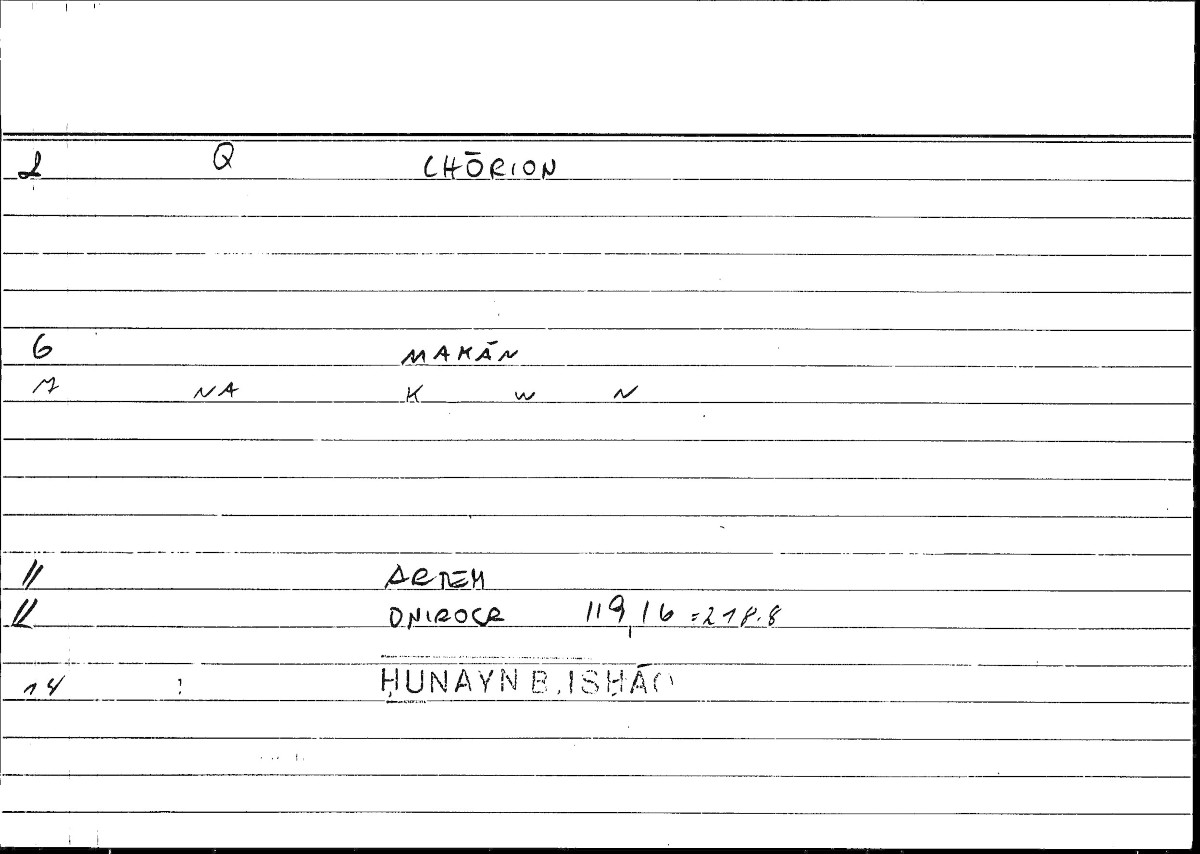 2 Q CHŌRION
6 MAKĀN
7 NA K W N
11 ARTEM
12 ONIROCR 119,16 =218.8
14 ḤUNAYN B. ISḤĀQ